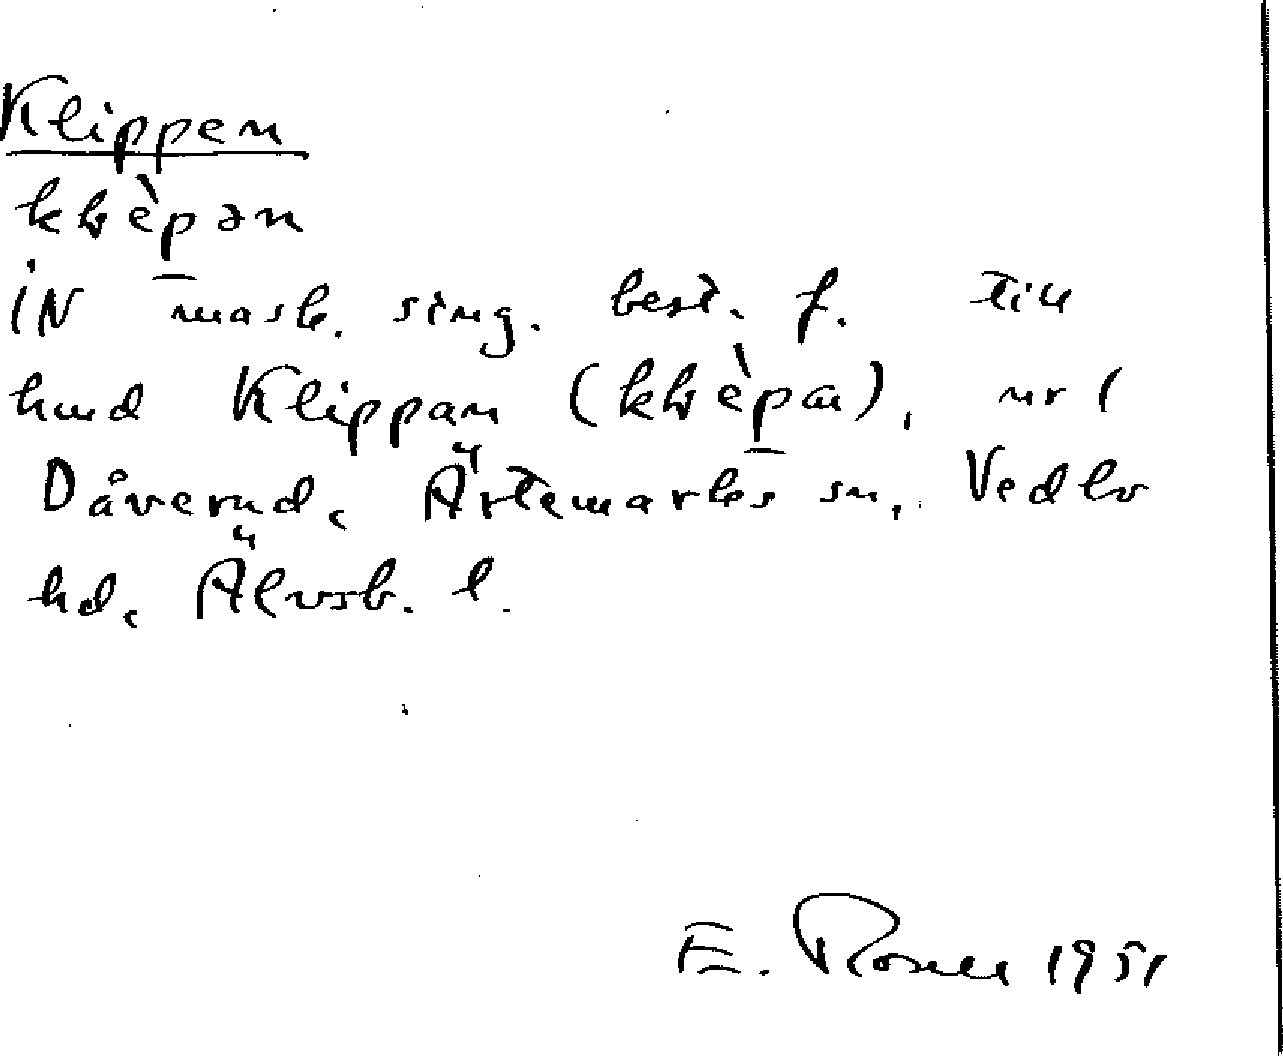 Klippen
klèpən
IN mask. sing. best. f. till
hmd Klippan (klèpa), nr 1
Dåverud, Ärtemarks sn, Vedbo
hd, Älvsb. l.
E. Rosell 1951